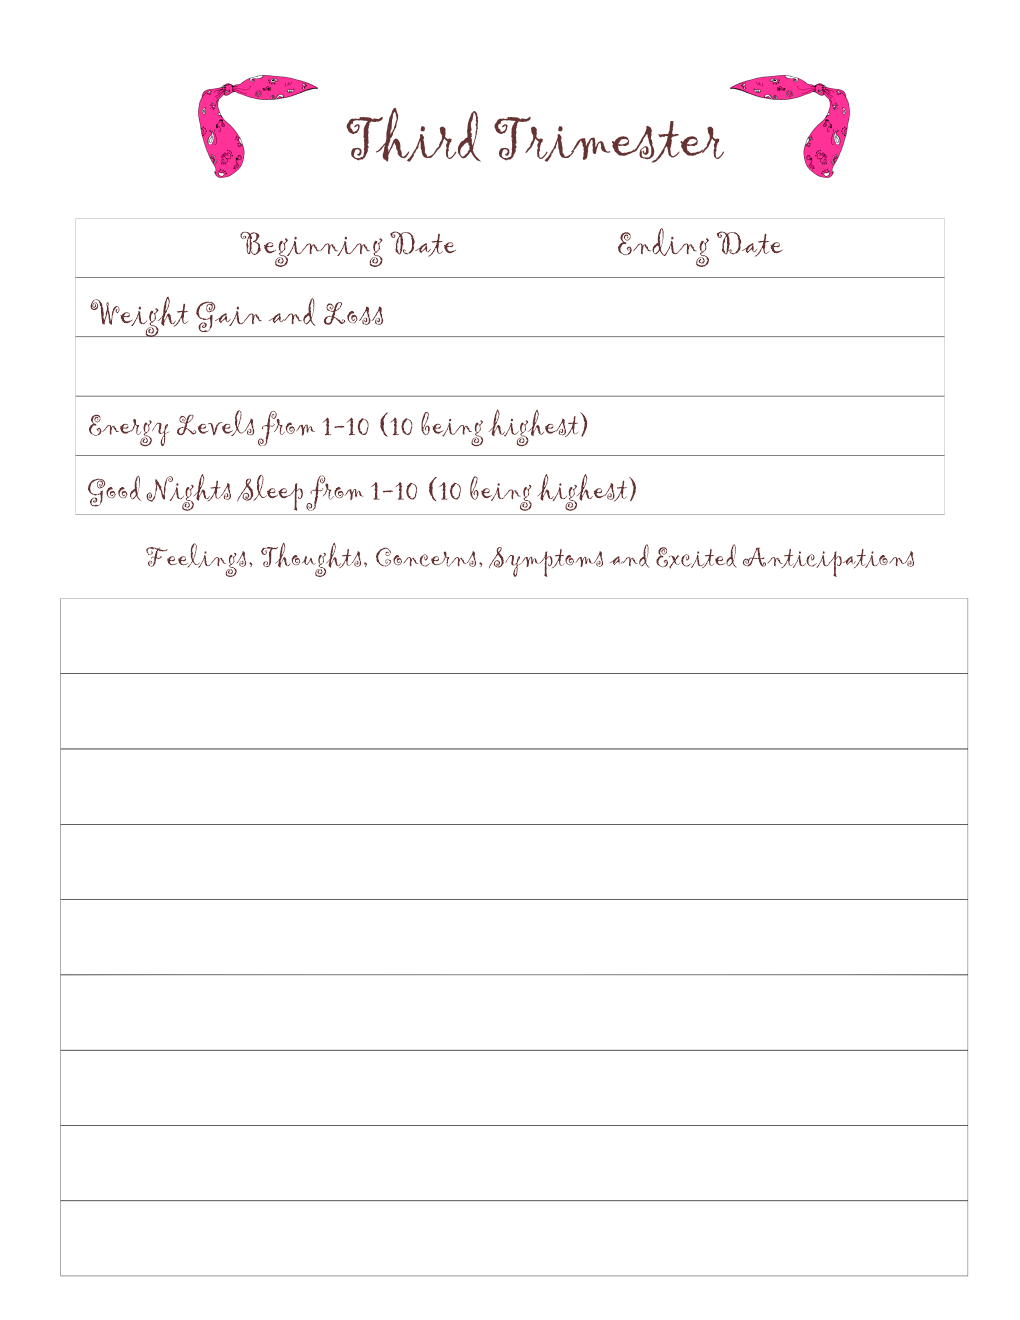 Third Trimester
Beginning Date Ending Date
Weight Gain and Loss
Energy Levels from 1-10 (10 being highest)
Good Nights Sleep from 1-10 (10 being highest)
Feelings, Thoughts, Concerns, Symptoms and Excited Anticipations